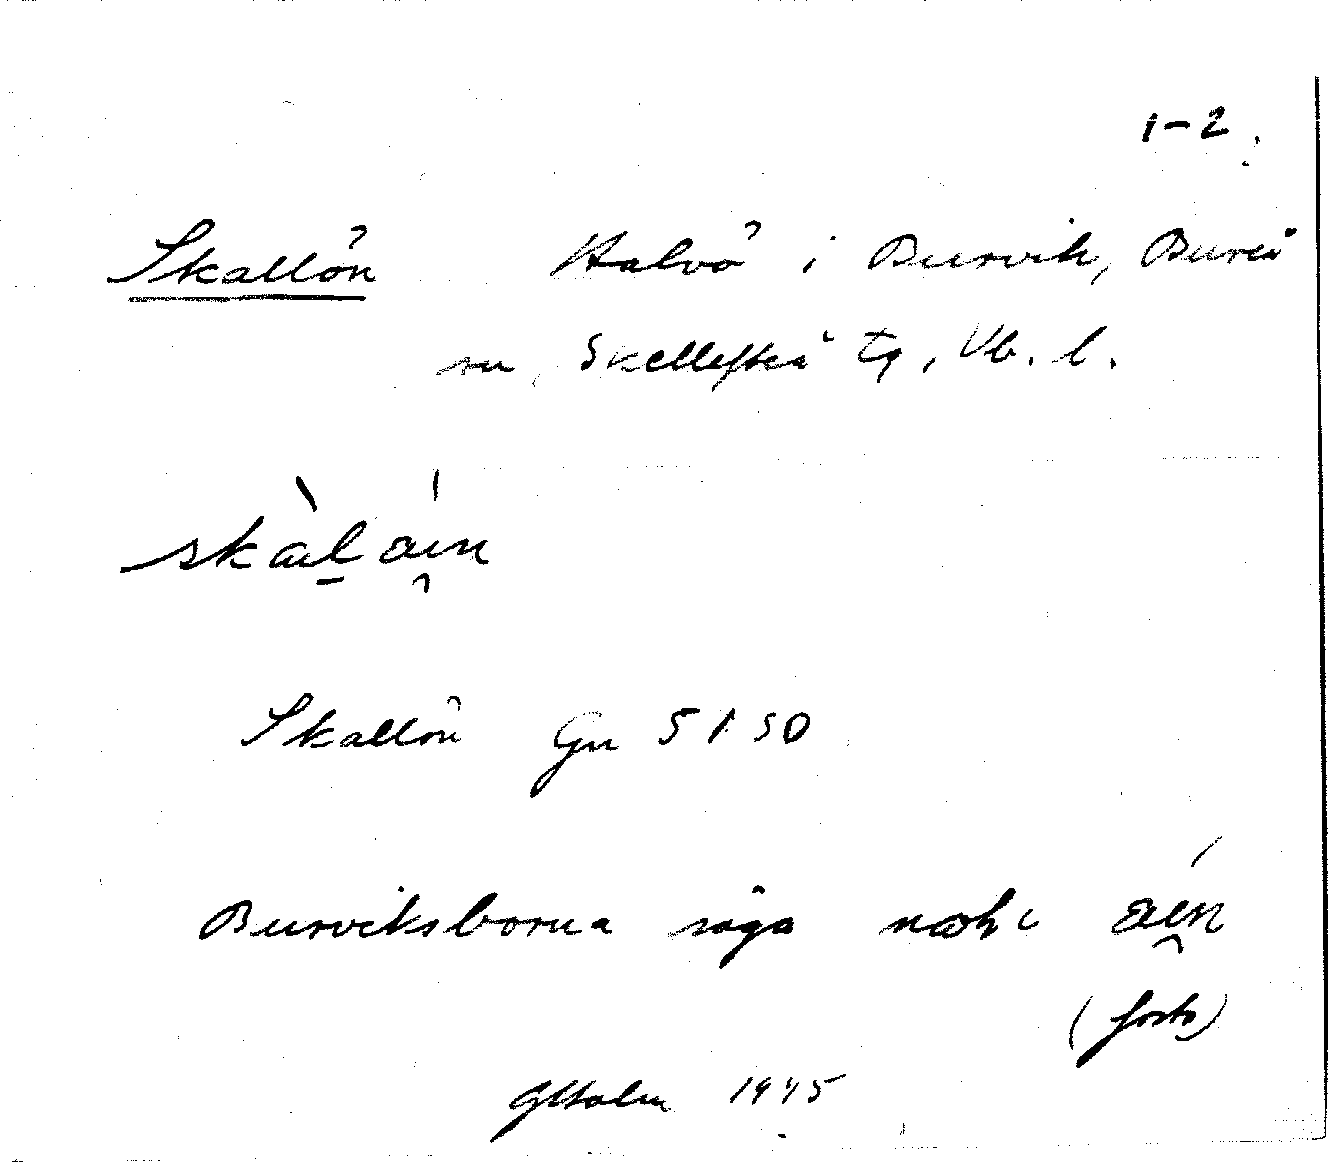 1-2.
Skallön Halvö i Burvik, Bureå
sn, Skellefteå tg, Vb. l.
skàḻ áı̯n
Skallön Gn 5150
Burviksborna säga áı̯n
(forts)
GHolm 1945